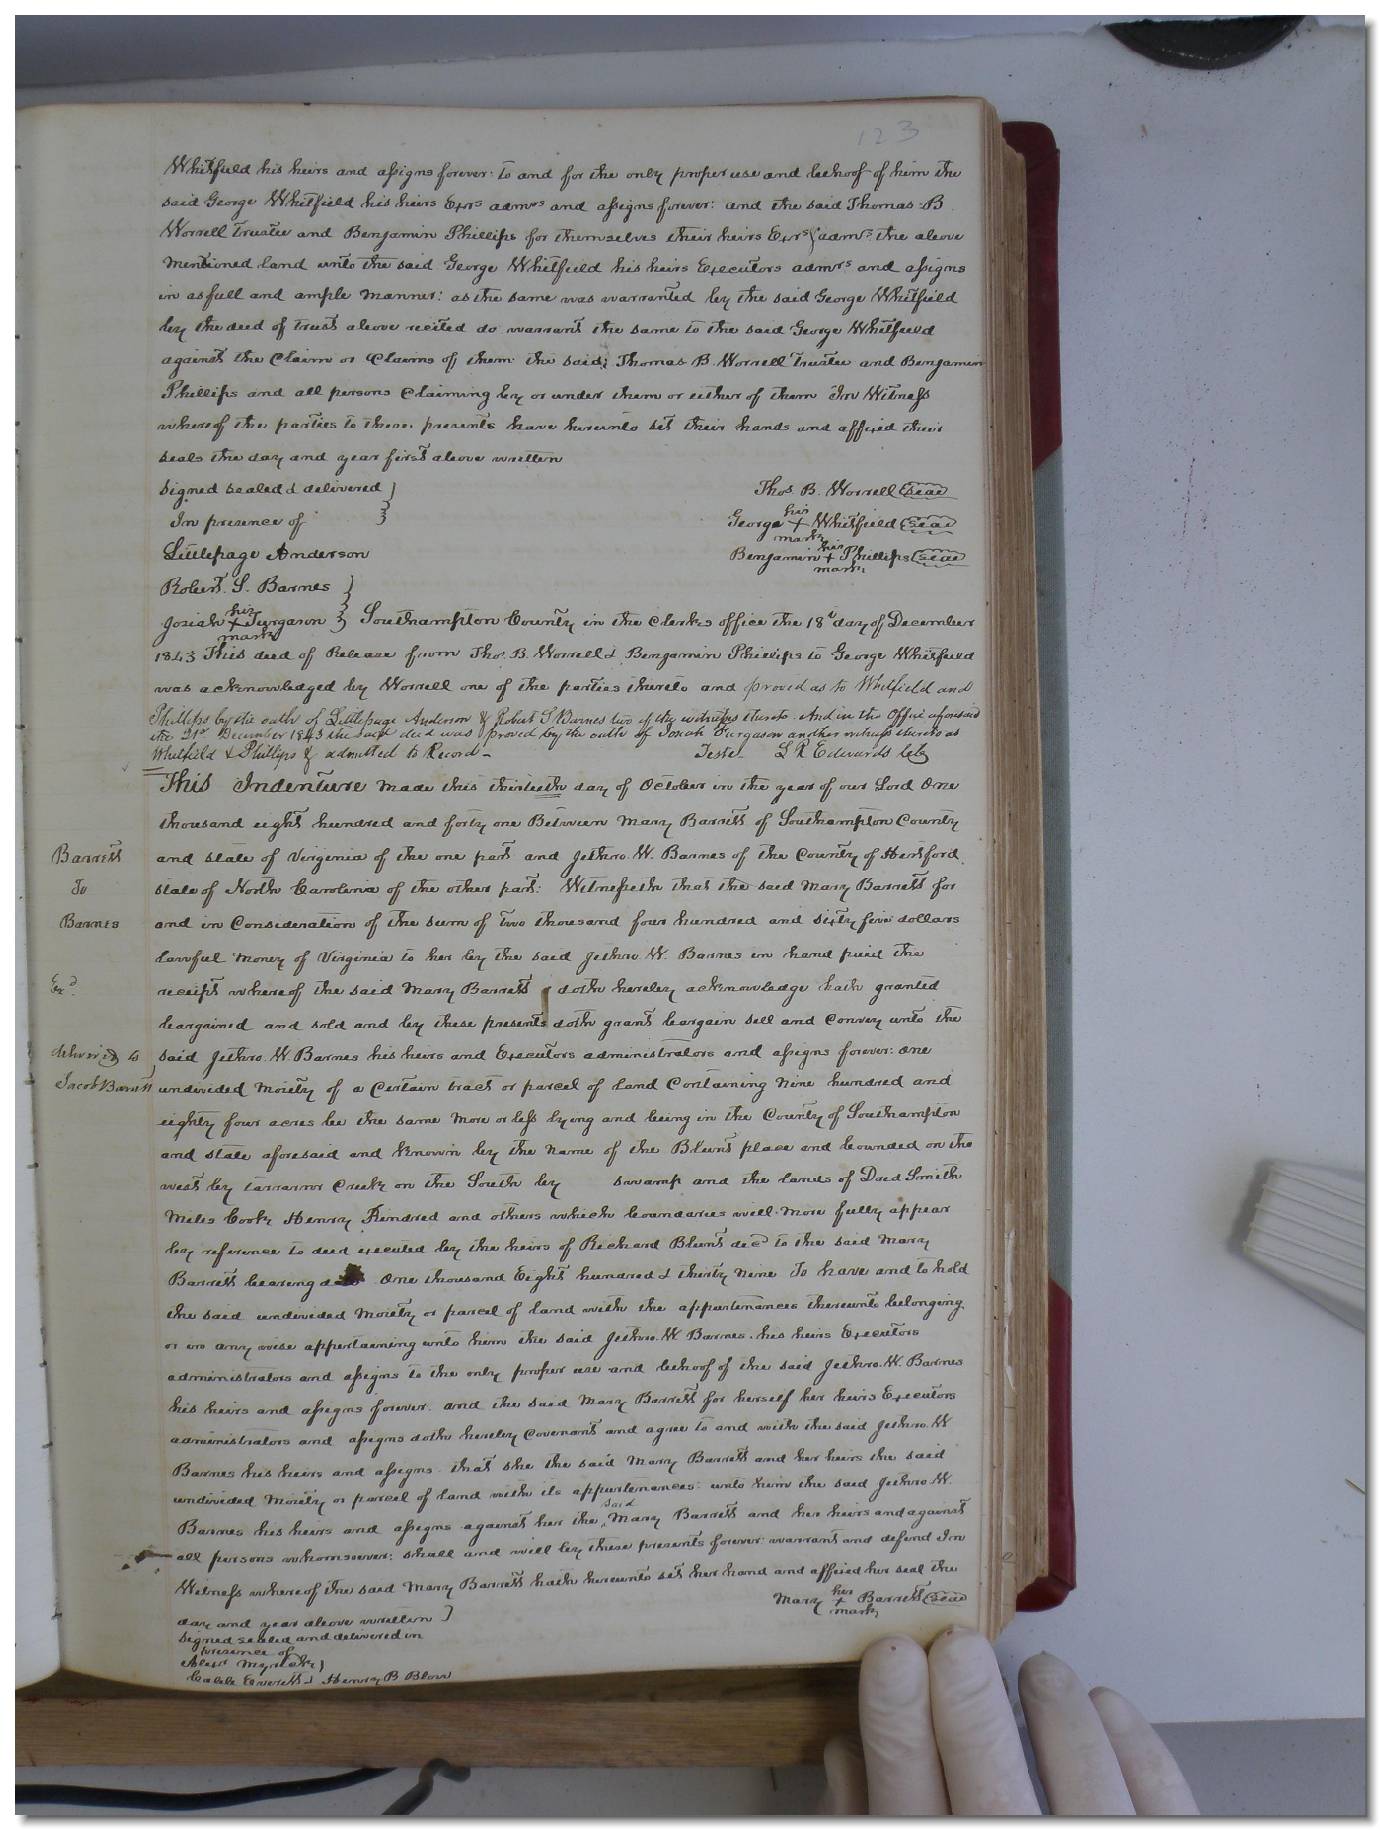 123
Whitfield his heirs and assigns forever: to and for the only proper use and behoof of him the
said George Whitfield his heirs Exrs admrs and assigns forever: and the said Thomas B
Worrell Trustee and Benjamin Phillips for themselves their heirs Exrs & admrs the above
mentioned land unto the said George Whitfield his heirs Executors admrs and assigns
in as full and ample manner: as the same was warranted by the said George Whitfield
by the deed of trust above recited do warrant the same to the said George Whitfield
against the claim or claims of them the said; Thomas B. Worrell Trustee and Benjamin
Phillips and all persons claiming by or under them or either of them In Witness
whereof the parties to these presents have hereunto set their hands and affixed their
seals the day and year first above written
Signed sealed & delivered } Thos. B. Worrell Seal
In presence of } George his + mark Whitfield Seal
Littlepage Anderson Benjamin his + mark Phillips Seal
Robert S. Barnes }
Josiah his + mark Furgason } Southampton County in the Clerks office the 18t day of December
1843 This deed of Release from Thos. B. Worrell & Benjamin Phillips to George Whitfield
was acknowledged by Worrell one of the parties thereto and proved as to Whitfield and
Phillips by the oaths of Littlepage Anderson & Robert S Barnes two of the witnesses thereto. And in the Office aforesaid
the 21st December 1843 the said deed was proved by the oath of Josiah Furgason another witness thereto as
Whitfield & Phillips & admitted to Record–
Teste L R Edwards Clk
This Indenture made this thirtieth day of October in the year of our Lord One
thousand eight hundred and forty one Between Mary Barrett of Southampton County
Barrett
and state of Virginia of the one part and Jethro. W. Barnes of the County of Hertford.
To
state of North Carolina of the other part: Witnesseth that the said Mary Barrett for
Barnes
and in Consideration of the sum of two thousand four hundred and sixty five dollars
lawful money of Virginia to her by the said Jethro. W. Barnes in hand paid the
Exd.
receipt whereof the said Mary Barrett doth hereby acknowledge hath granted
bargained and sold and by these presents doth grant bargain sell and convey unto the
delivered to
said Jethro. W. Barnes his heirs and Executors administrators and assigns forever: one
Jacob Barrett
undivided moiety of a certain tract or parcel of land containing nine hundred and
eighty four acres be the same more or less lying and being in the County of Southampton
and state aforesaid and known by the name of the Blunt place and bounded on the
west by tarrarar Creek on the South by swamp and the lands of Dred Smith
Miles Cook Henry Kindred and others which boundaries will more fully appear
by reference to deed executed by the heirs of Richard Blunt decd to the said Mary
Barrett bearing One thousand Eight hundred & thirty nine To have and to hold
the said undivided moiety or parcel of land with the appurtenances thereunto belonging
or in any wise appertaining unto him the said Jethro. W. Barnes. his heirs Executors
administrators and assigns to the only proper use and behoof of the said Jethro. W. Barnes
his heirs and assigns forever. and the said Mary Barrett for herself her heirs Executors
administrators and assigns doth hereby covenant and agree to and with the said Jethro. W
Barnes his heirs and assigns. that she the said Mary Barrett and her heirs the said
undivided moiety or parcel of land with its appurtenances: unto him the said Jethro. W.
Barnes his heirs and assigns against her the said Mary Barrett and her heirs and against
all persons whomsoever: shall and will by these presents forever warrant and defend In
Witness whereof the said Mary Barrett hath hereunto set her hand and affixed her seal the
day and year above written } Mary her + mark Barrett Seal
Signed sealed and delivered in
presence of
Alexr Myrick }
Caleb Everett & Henry B Blow